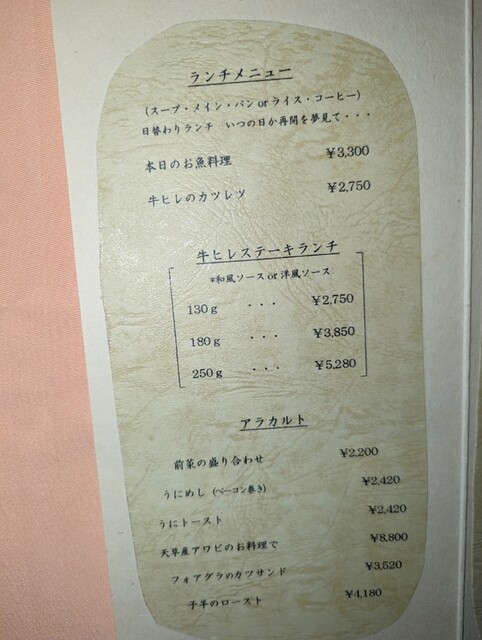 ランチメニュー
(スープ・メイン・パン or ライス・コーヒー)
日替わりランチ いつの日か再開を夢見て・・・
本日のお魚料理 ¥3,300
牛ヒレのカツレツ ¥2,750
牛ヒレステーキランチ
*和風ソース or 洋風ソース
130g ・・・ ¥2,750
180g ・・・ ¥3,850
250g ・・・ ¥5,280
アラカルト
前菜の盛り合わせ ¥2,200
うにめし (ベーコン巻き) ¥2,420
うにトースト ¥2,420
天草産アワビのお料理で ¥8,800
フォアグラのカツサンド ¥3,520
子羊のロースト ¥4,180